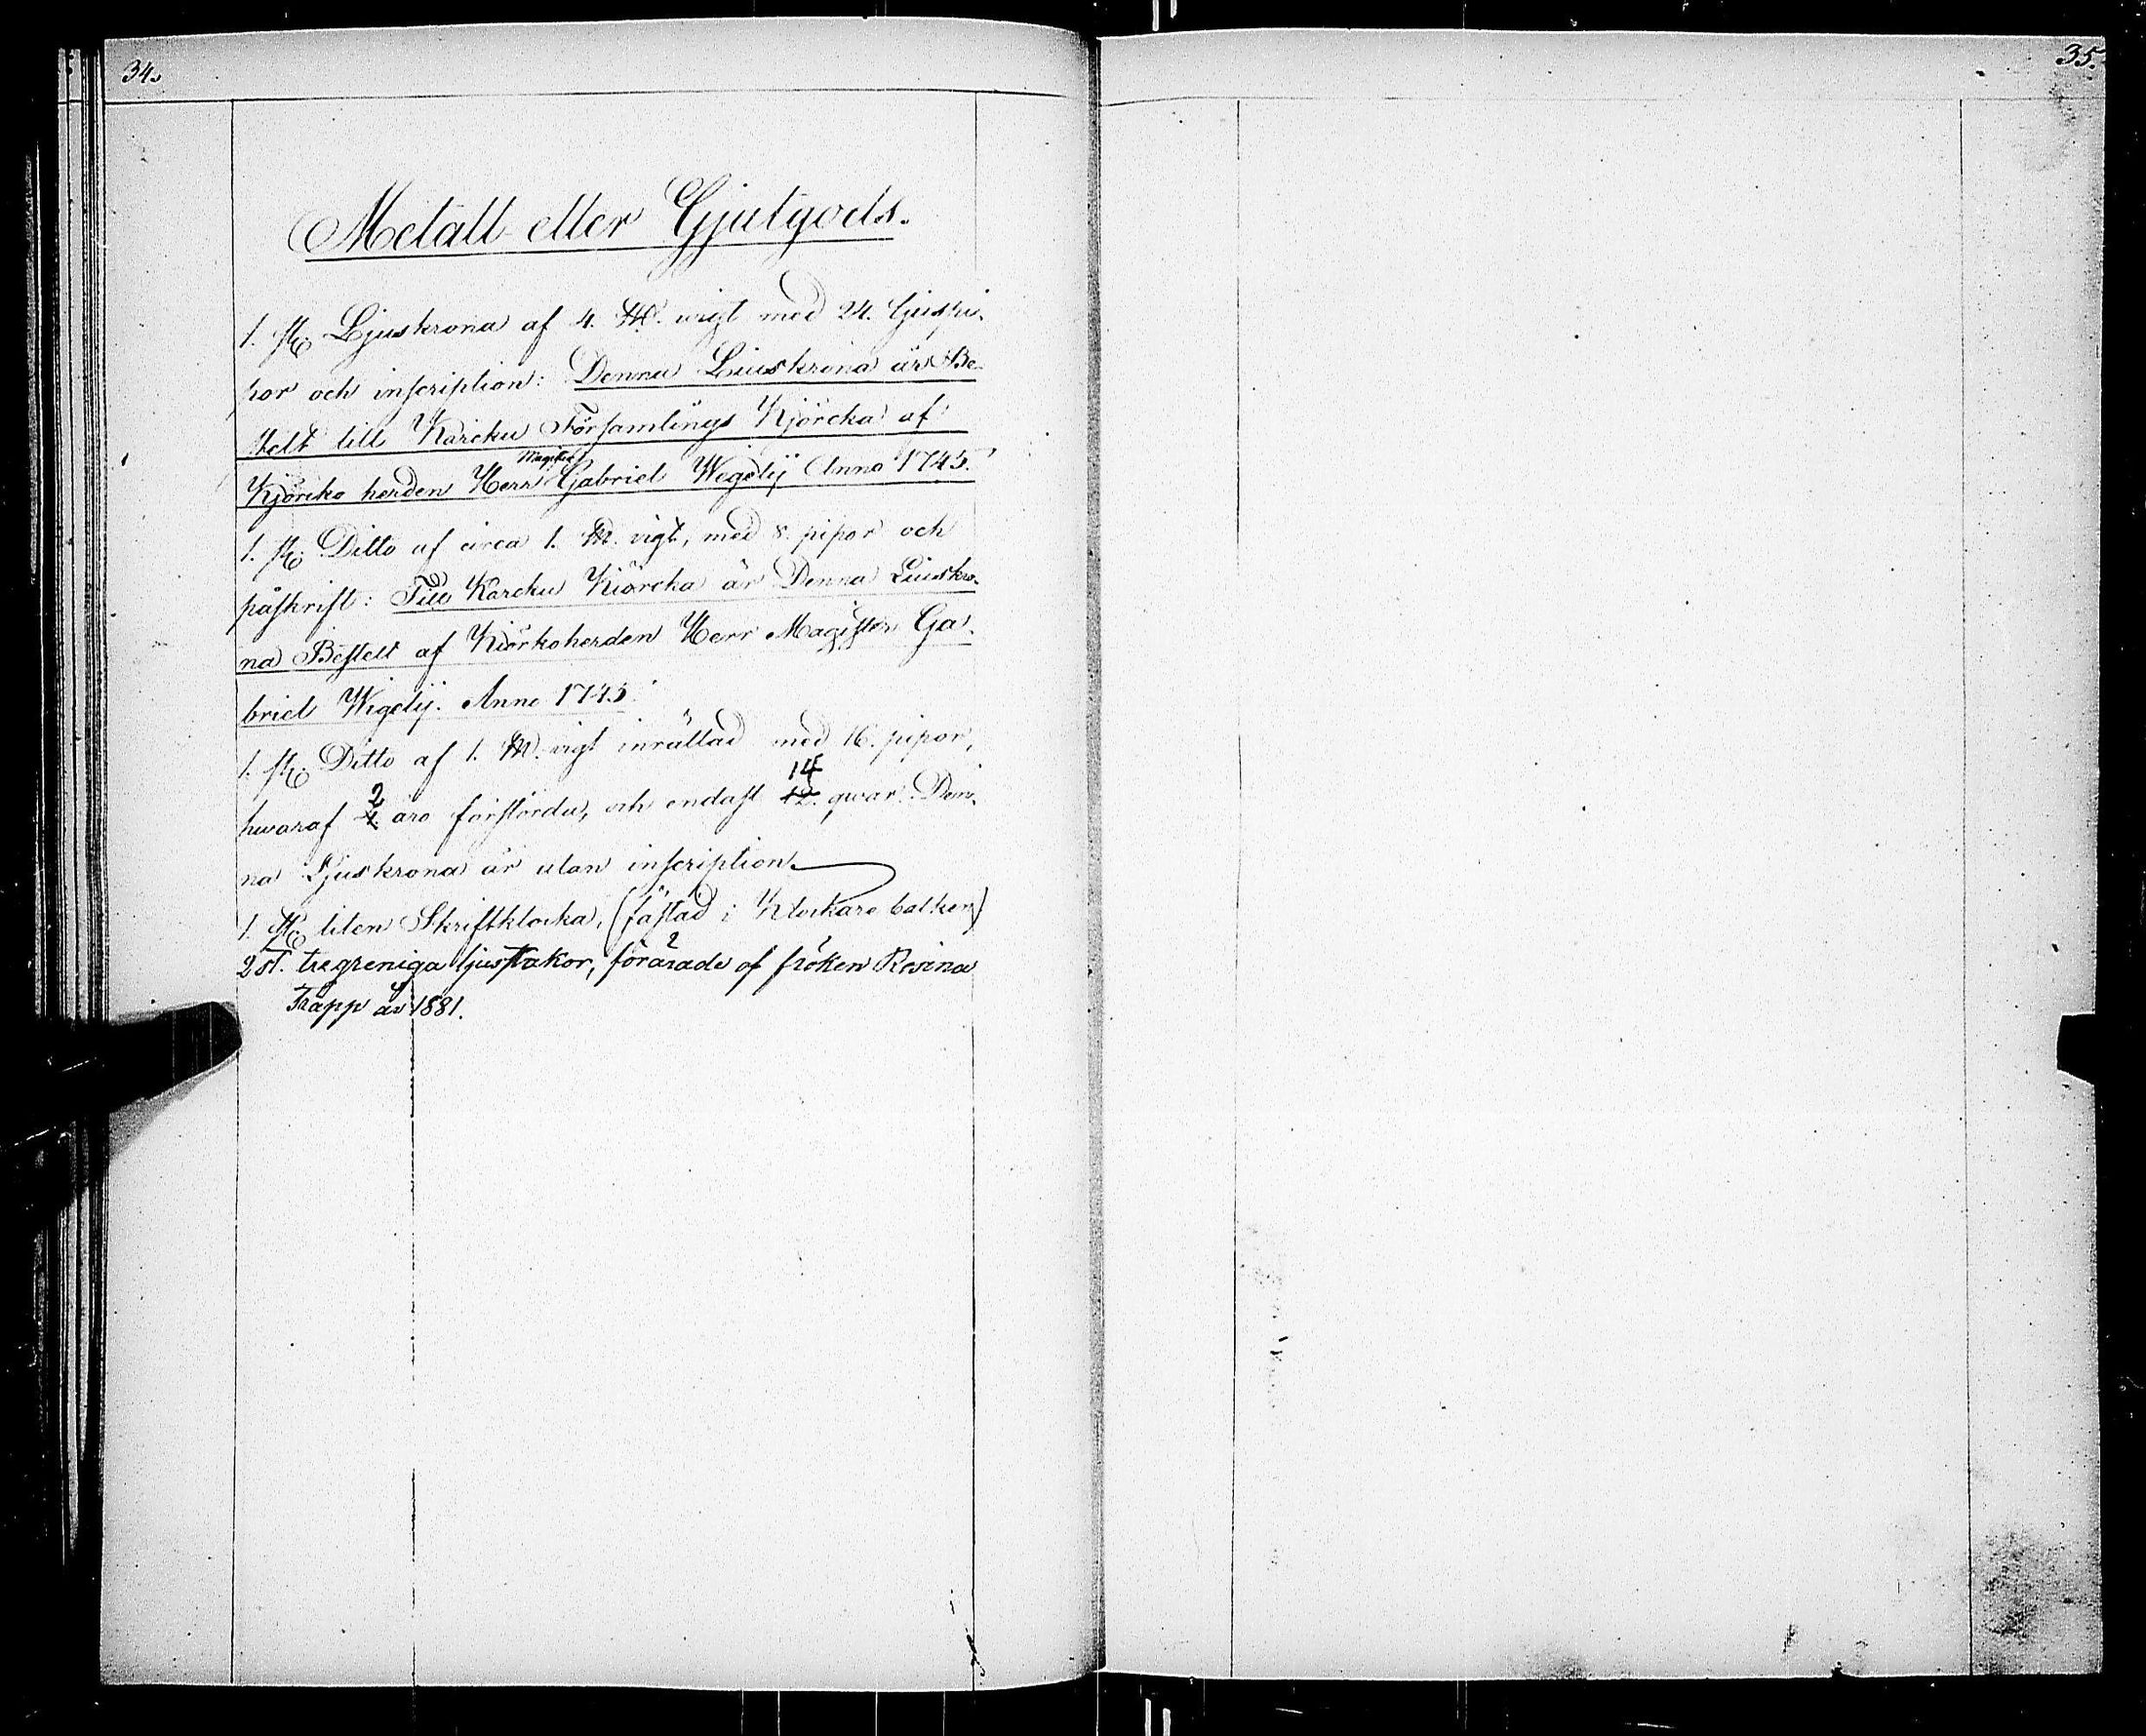 34.
35.
Metall eller Gjutgods.
1. st. Ljuskrona af 4. L℔. vigt med 24. ljuspi-
por och inscription: Denna Liuskrona är Be-
stelt till Karcku Församlings Kjörcka af
Kjörcko herden Herr Magister Gabriel Wegelij Anno 1745.
1. st. Ditto af circa 1. L℔. vigt, med 8. pipor och
påskrift: Till Karcku Kiörcka är Denna Liuskro-
na Bestelt af Kiörkoherden Herr Magister Ga-
briel Wigelij. Anno 1745.
1. st. Ditto af 1. L℔. vigt inrättad med 16. pipor,
hwaraf 2 äro förstörda, och endast 14 12. qwar. Den-
na Ljuskrona är utan inscription
1. st. liten Skriftklocka, (fästad i Klockare balken)
2 st. tregreniga ljusstakor, förärade af fröken Rosina
Trapp år 1881.